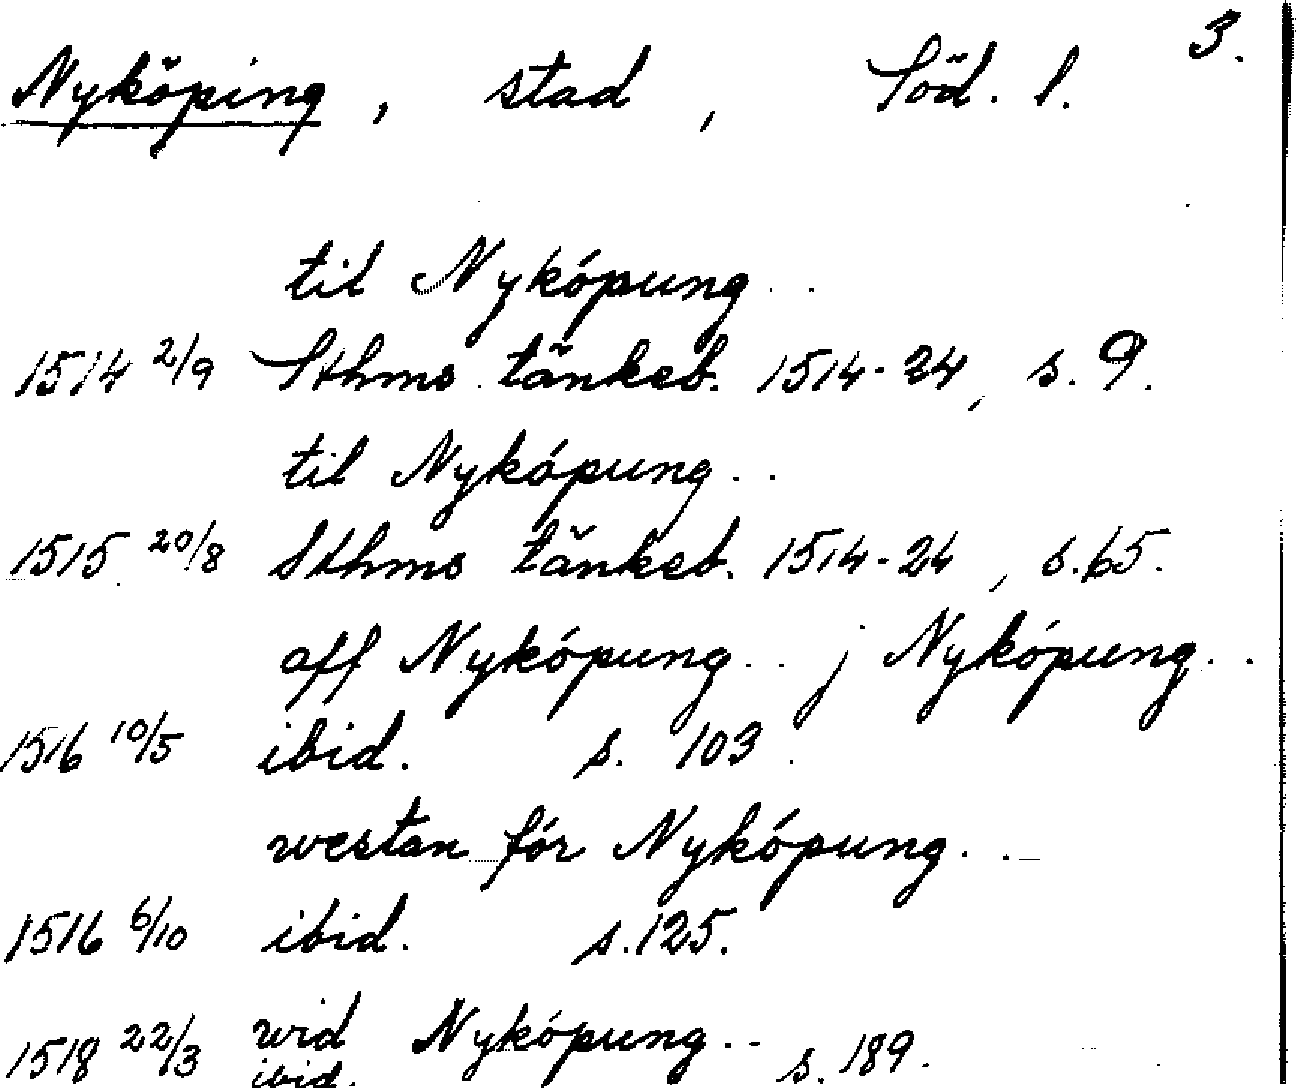 3.
Nyköping, stad, Söd. l.
til Nykópung..
1514 2/9 Sthms tänkeb. 1514-24, s. 9.
til Nykópung..
1515 20/8 Sthms tänkeb. 1514-24, s. 65.
aff Nykópung.. j Nykópung..
1516 10/5 ibid. s. 103.
westan fór Nykópung..
1516 6/10 ibid. s. 125.
wid Nykópung..
1518 22/3 ibid. s. 189.